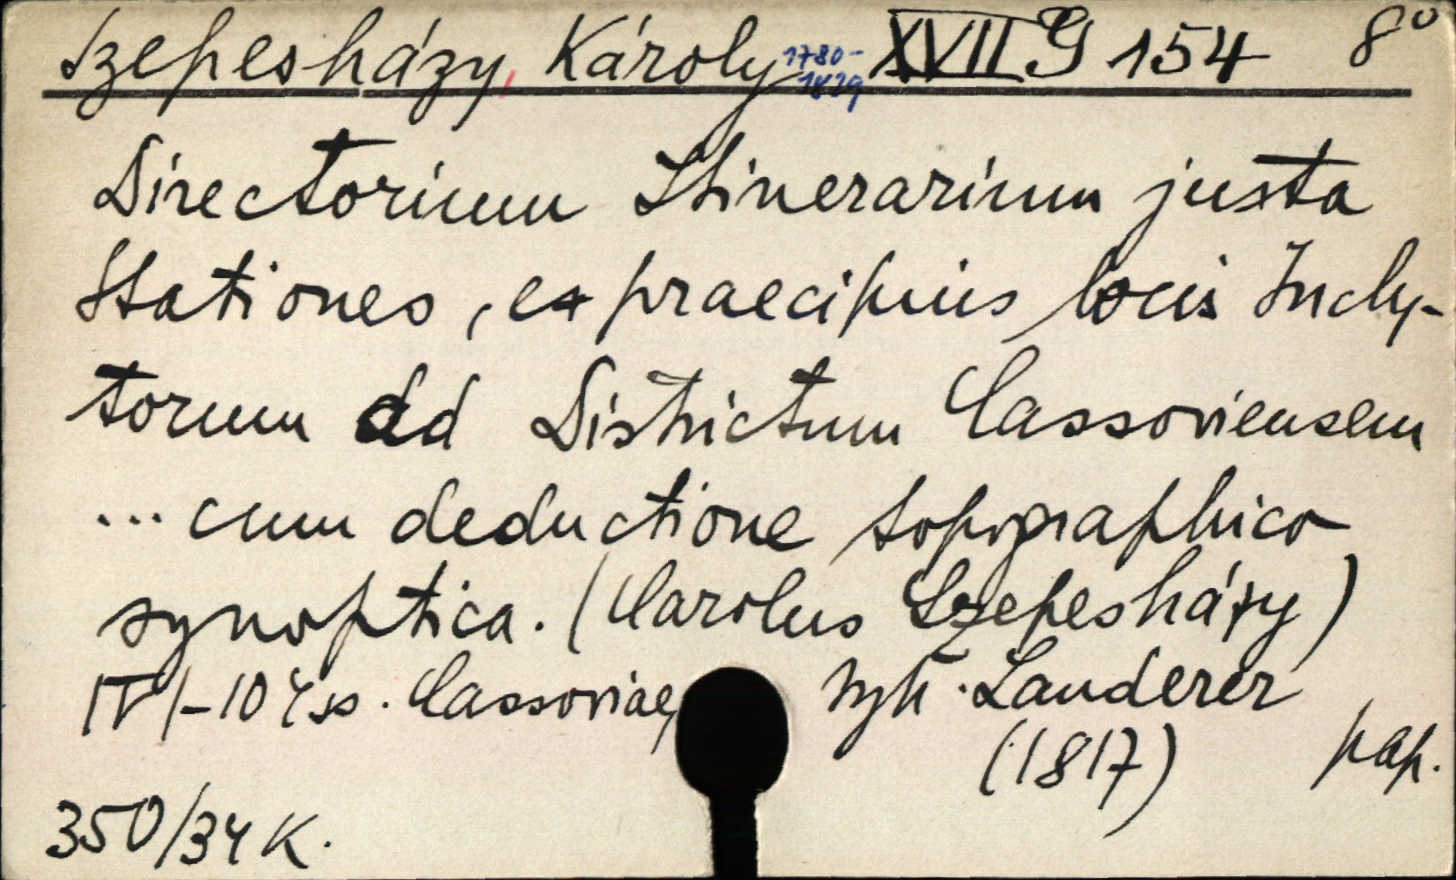 Szepesházy, Károly 1780-1829 XVII G 154 8°
Directorium Itinerarium juxta
Stationes, ex praecipuis locis Incly-
torum ad Districtum Cassoviensem
... cum deductione topographico
synoptica. (Carolus Szepesházy)
IV/-104 ss. Cassoviae, Landerer
(1817) pap.
350/34 K.